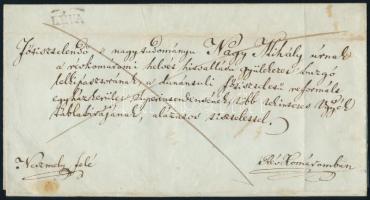 LÉVA
Főtisztelendő s nagytudományu Nagy Mihály úrnak
a révkomáromi helvét hitvallású gyülekezet buzgó
lelkipásztorának, a dunántúli főtiszteletü reformált
egyházkerület Superintendensének, több tekintetes
táblabirájának, alázatos tisztelettel.
Neszmély felé
Rév Komáromban